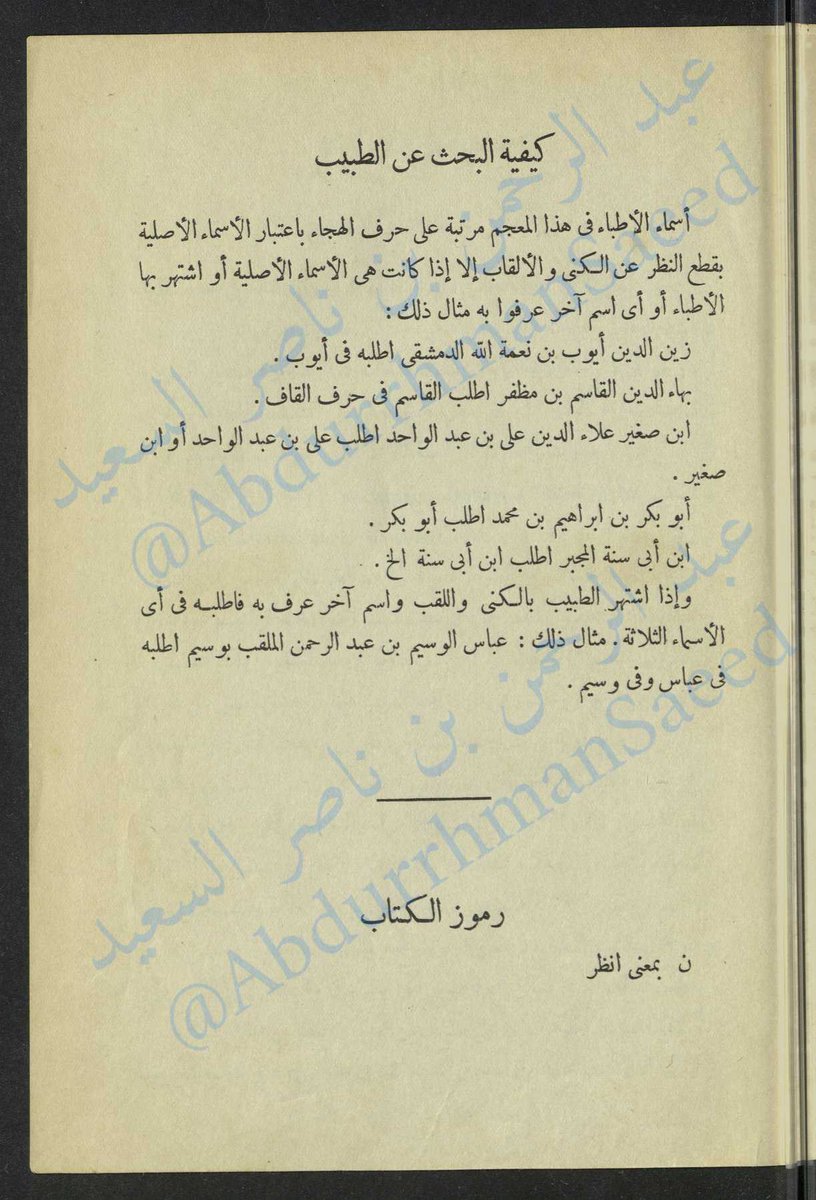 كيفية البحث عن الطبيب
أسماء الأطباء فى هذا المعجم مرتبة على حرف الهجاء باعتبار الأسماء الأصلية
بقطع النظر عن الكنى والألقاب إلا إذا كانت هى الأسماء الأصلية أو اشتهر بها
الأطباء أو أى اسم آخر عرفوا به مثال ذلك :
زين الدين أيوب بن نعمة الله الدمشقى اطلبه فى أيوب .
بهاء الدين القاسم بن مظفر اطلب القاسم فى حرف القاف .
ابن صغير علاء الدين على بن عبد الواحد اطلب على بن عبد الواحد أو ابن
صغير .
أبو بكر بن ابراهيم بن محمد اطلب أبو بكر .
ابن أبى سنة المجبر اطلب ابن أبى سنة الخ .
وإذا اشتهر الطبيب بالكنى واللقب واسم آخر عرف به فاطلبه فى أى
الأسماء الثلاثة . مثال ذلك : عباس الوسيم بن عبد الرحمن الملقب بوسيم اطلبه
فى عباس وفى وسيم .
رموز الكتاب
ن بمعنى انظر
عبد الرحمن بن ناصر السعيد
@AbdurrhmanSaeed
عبد الرحمن بن ناصر السعيد
@AbdurrhmanSaeed